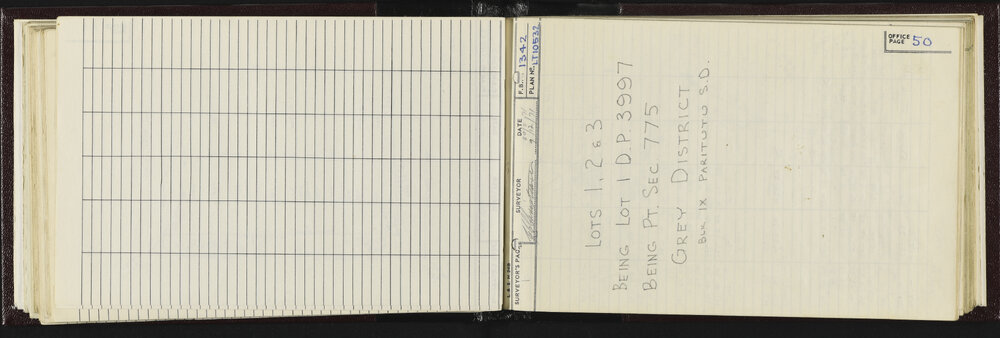 OFFICE PAGE 50
F.B. 1342
PLAN No. LT10532
DATE 9/12/71
SURVEYOR
SURVEYOR'S PAGE 1
LOTS 1, 2 & 3
BEING LOT 1 D.P. 3997
BEING PT. SEC 775
GREY DISTRICT
BLK IX PARITUTU S.D.